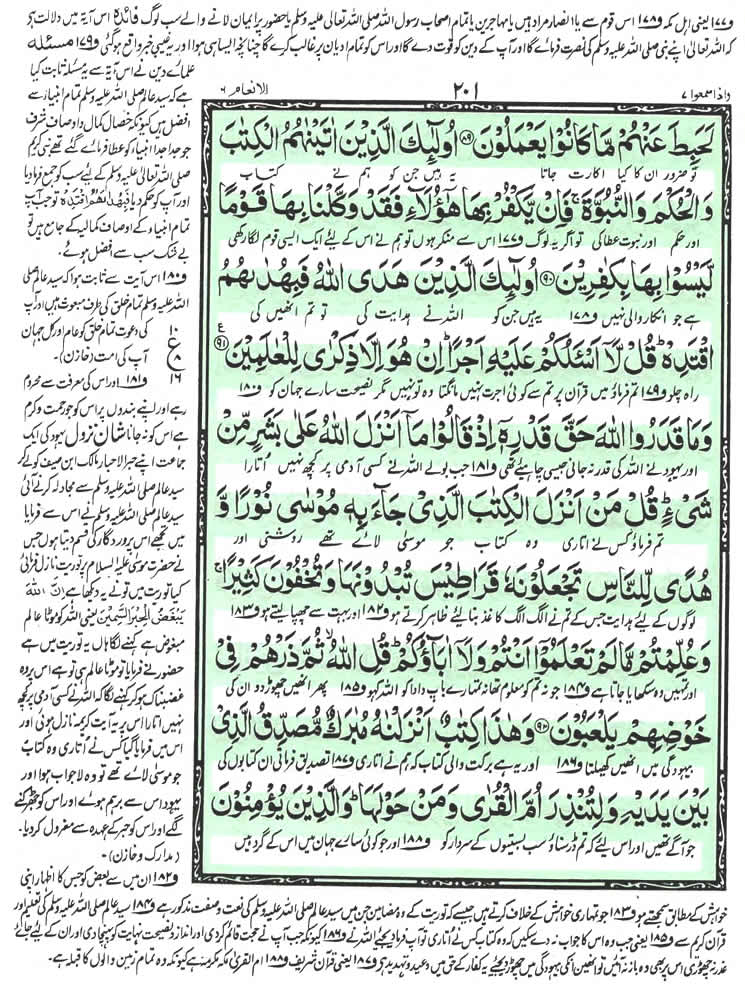 و۱۷۷ یعنی اہل مکہ و۱۷۸ اس قوم سے یا انصار مراد ہیں یا مہاجرین یا تمام اصحاب رسول اللہ صلی اللہ تعالیٰ علیہ وسلم یا حضور پر ایمان لانے والے سب لوگ فائدہ اس آیۃ میں دلالت ہے
کہ اللہ تعالیٰ اپنے نبی صلی اللہ علیہ وسلم کی نصرت فرمائے گا اور آپ کے دین کو قوت دے گا اور اس کو تمام ادیان پر غالب کرے گا چنانچہ ایسا ہی ہوا اور یہ غیبی خبر واقع ہوگئی و۱۷۹ مسئلہ
واذا سمعوا ۷
۲۰۱
الانعام ۶
لَحَبِطَ عَنْهُمْ مَّا كَانُوْا يَعْمَلُوْنَ ۸۹ اُولٰٓئِكَ الَّذِيْنَ اٰتَيْنٰهُمُ الْكِتٰبَ
تو ضرور ان کا کیا اکارت جاتا یہ ہیں جن کو ہم نے کتاب
وَالْحُكْمَ وَالنُّبُوَّةَ ۚ فَاِنْ يَّكْفُرْ بِهَا هٰٓؤُلَآءِ فَقَدْ وَكَّلْنَا بِهَا قَوْمًا
اور حکم اور نبوت عطا کی تو اگر یہ لوگ و۱۷۷ اس سے منکر ہوں تو ہم نے اس کے لئے ایک ایسی قوم لگا رکھی
لَّيْسُوْا بِهَا بِكٰفِرِيْنَ ۹۰ اُولٰٓئِكَ الَّذِيْنَ هَدَى اللّٰهُ فَبِهُدٰىهُمُ
ہے جو انکار والی نہیں و۱۷۸ یہ ہیں جن کو اللہ نے ہدایت کی تو تم انھیں کی
اقْتَدِهْ ؕ قُلْ لَّآ اَسْئَلُكُمْ عَلَيْهِ اَجْرًا ؕ اِنْ هُوَ اِلَّا ذِكْرٰى لِلْعٰلَمِيْنَ ۹۱ ع
راہ چلو و۱۷۹ تم فرماؤ میں قرآن پر تم سے کوئی اجرت نہیں مانگتا وہ تو نہیں مگر نصیحت سارے جہان کو و۱۸۰
وَمَا قَدَرُوا اللّٰهَ حَقَّ قَدْرِهٖٓ اِذْ قَالُوْا مَآ اَنْزَلَ اللّٰهُ عَلٰى بَشَرٍ مِّنْ
اور یہود نے اللہ کی قدر نہ جانی جیسی چاہیئے تھی و۱۸۱ جب بولے اللہ نے کسی آدمی پر کچھ نہیں اُتارا
شَىْءٍ ؕ قُلْ مَنْ اَنْزَلَ الْكِتٰبَ الَّذِىْ جَآءَ بِهٖ مُوْسٰى نُوْرًا وَّ
تم فرماؤ کس نے اتاری وہ کتاب جو موسیٰ لائے تھے روشنی اور
هُدًى لِّلنَّاسِ تَجْعَلُوْنَهٗ قَرَاطِيْسَ تُبْدُوْنَهَا وَتُخْفُوْنَ كَثِيْرًا ۚ
لوگوں کے لئے ہدایت جس کے تم نے الگ الگ کاغذ بنا لیئے ظاہر کرتے ہو و۱۸۲ اور بہت سے چھپا لیتے ہو و۱۸۳
وَعُلِّمْتُمْ مَّا لَمْ تَعْلَمُوْٓا اَنْتُمْ وَلَآ اٰبَآؤُكُمْ ؕ قُلِ اللّٰهُ ۙ ثُمَّ ذَرْهُمْ فِىْ
اور تمہیں وہ سکھایا جاتا ہے و۱۸۴ جو نہ تم کو معلوم تھا نہ تمہارے باپ دادا کو اللہ کہو و۱۸۵ پھر انھیں چھوڑ دو ان کی
خَوْضِهِمْ يَلْعَبُوْنَ ۹۲ وَهٰذَا كِتٰبٌ اَنْزَلْنٰهُ مُبٰرَكٌ مُّصَدِّقُ الَّذِىْ
بیہودگی میں انھیں کھیلتا و۱۸۶ اور یہ ہے برکت والی کتاب کہ ہم نے اتاری و۱۸۷ تصدیق فرماتی ان کتابوں کی
بَيْنَ يَدَيْهِ وَلِتُنْذِرَ اُمَّ الْقُرٰى وَمَنْ حَوْلَهَا ؕ وَالَّذِيْنَ يُؤْمِنُوْنَ
جو آگے تھیں اور اس لیئے کہ تم ڈر سناؤ سب بستیوں کے سردار کو و۱۸۸ اور جو کوئی سارے جہان میں اس کے گرد ہیں
علمائے دین نے اس آیۃ سے یہ مسئلہ ثابت کیا
ہے کہ سید عالم صلی اللہ علیہ وسلم تمام انبیاء سے
افضل ہیں کیونکہ خصال کمال و اوصاف شرف
جو جدا جدا انبیاء کو عطا فرمائے گئے تھے نبی کریم
صلی اللہ تعالیٰ علیہ وسلم کے لیئے سب کو جمع فرما دیا
اور آپ کو حکم دیا فَبِهُدٰىهُمُ اقْتَدِهْ تو جب آپ
تمام انبیاء کے اوصاف کمالیہ کے جامع ہیں تو
بے شک سب سے افضل ہوئے۔
و۱۸۰ اس آیت سے ثابت ہوا کہ سید عالم صلی
اللہ علیہ وسلم تمام خلق کی طرف مبعوث ہیں اور آپ
کی دعوت تمام خلق کو عام اور کل جہان
آپ کی امت (خازن)
۱۰
ع
۸
۱۶
و۱۸۱ اور اس کی معرفت سے محروم
رہے اور اپنے بندوں پر اس کو جو رحمت و کرم
ہے اس کو نہ جانا شان نزول یہود کی ایک
جماعت اپنے حبر الاحبار مالک ابن صیف کو لے کر
سید عالم صلی اللہ علیہ وسلم سے مجادلہ کرنے آئی
سید عالم صلی اللہ علیہ وسلم نے اس سے فرمایا
میں تجھے اس پروردگار کی قسم دیتا ہوں جس
نے حضرت موسیٰ علیہ السلام پر توریت نازل فرمائی
کیا توریت میں تو نے یہ دیکھا ہے اِنَّ اللّٰهَ
يُبْغِضُ الْحِبْرَ السَّمِيْنَ یعنی اللہ کو موٹا عالم
مبغوض ہے کہنے لگا ہاں یہ توریت میں ہے
حضور نے فرمایا تو موٹا عالم ہی تو ہے اس پر وہ
غضبناک ہو کر کہنے لگا کہ اللہ نے کسی آدمی پر کچھ
نہیں اتارا اس پر یہ آیت کریمہ نازل ہوئی اور
اس میں فرمایا گیا کس نے اُتاری وہ کتاب
جو موسیٰ لائے تھے تو وہ لاجواب ہوا اور
یہود اس سے برہم ہوئے اور اس کو جھڑکنے
لگے اور اس کو حبر کے عہدہ سے معزول کر دیا۔
(مدارک و خازن)۔
و۱۸۲ ان میں سے بعض کو جس کا اظہار اپنی
خواہش کے مطابق سمجھتے ہو و۱۸۳ جو تمہاری خواہش کے خلاف کرتے ہیں جیسے کہ توریت کے وہ مضامین جن میں سید عالم صلی اللہ علیہ وسلم کی نعت و صفت مذکور ہے و۱۸۴ سید عالم صلی اللہ علیہ وسلم کی تعلیم اور
قرآن کریم سے و۱۸۵ یعنی جب وہ اس کا جواب نہ دے سکیں کہ وہ کتاب کس نے اُتاری تو آپ فرما دیجئے اللہ نے و۱۸۶ کیونکہ جب آپ نے حجت قائم کر دی اور انذار و نصیحت نہایت کو پہنچا دی اور ان کے لئے جائے
عذر نہ چھوڑی اس پر بھی وہ باز نہ آئیں تو انھیں انکی بیہودگی میں چھوڑ دیجئے یہ کفار کے حق میں وعید و تہدید ہے و۱۸۷ یعنی قرآن شریف و۱۸۸ ام القریٰ مکہ مکرمہ ہے کیونکہ وہ تمام زمین والوں کا قبلہ ہے۔